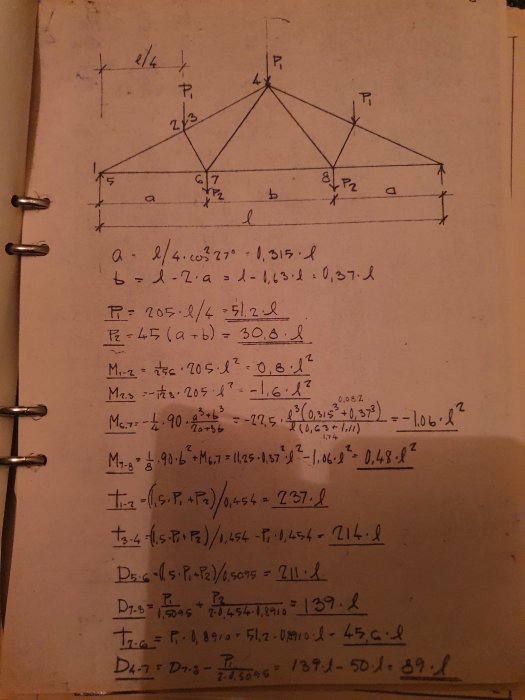 l/4
P₁
4
P₁
P₁
2 3
1
5
6 7
8
P₂
P₂
a
b
a
l
a = l/4·cos²27° = 0,315·l
b = l - 2·a = l - 0,63·l = 0,37·l
P₁ = 205·l/4 = 51,2·l
P₂ = 45(a+b) = 30,8·l
M₁₋₂ = 1/256·205·l² = 0,8·l²
M₂₋₃ = -1/128·205·l² = -1,6·l²
0,082
M₆,₇ = -1/4·90·a³+b³/2a+3b = -22,5·l³(0,315³+0,37³)/l(0,63+1,11) = -1,06·l²
1,74
M₇₋₈ = 1/8·90·b²+M₆,₇ = 11,25·0,37²·l²-1,06·l² = 0,48·l²
T₁₋₂ = (1,5·P₁+P₂)/0,454 = 237·l
T₃₋₄ = (1,5·P₁+P₂)/0,454 - P₁·0,454 = 214·l
D₅₋₆ = (1,5·P₁+P₂)/0,5095 = 211·l
D₇₋₈ = P₁/0,5095 + P₂/2·0,454·0,8910 = 139·l
T₂₋₆ = P₁·0,8910 = 51,2·0,8910·l = 45,6·l
D₄₋₇ = D₇₋₈ - P₁/2·0,5095 = 139·l-50·l = 89·l